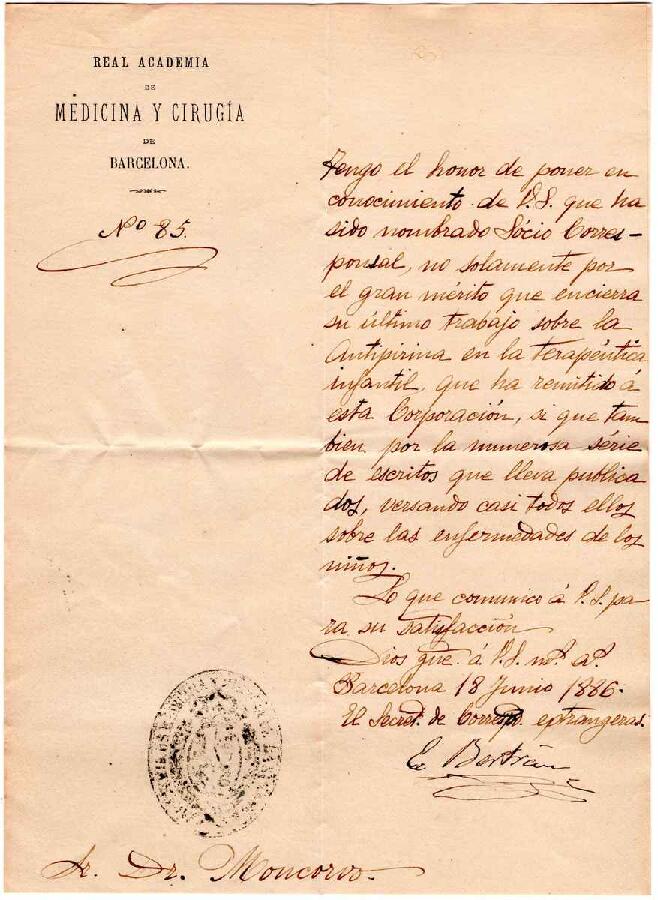 REAL ACADEMIA
DE
MEDICINA Y CIRUGÍA
DE
BARCELONA.
Nº 85.
Tengo el honor de poner en
conocimiento de V.S. que ha
sido nombrado Sócio Corres-
ponsal, no solamente por
el gran mérito que encierra
su último trabajo sobre la
Antipirina en la terapéutica
infantil, que ha remitido á
esta Corporación, si que tam
bien por la numerosa série
de escritos que lleva publica
dos, versando casi todos ellos
sobre las enfermedades de los
niños.
Lo que comunico á V.S. pa
ra su satisfacción
Dios gue. á V.S. ms. as.
Barcelona 18 Junio 1886.
El Secret. de Corresp. extrangeras.
E Bertrán
Sr. Dr. Moncorvo.